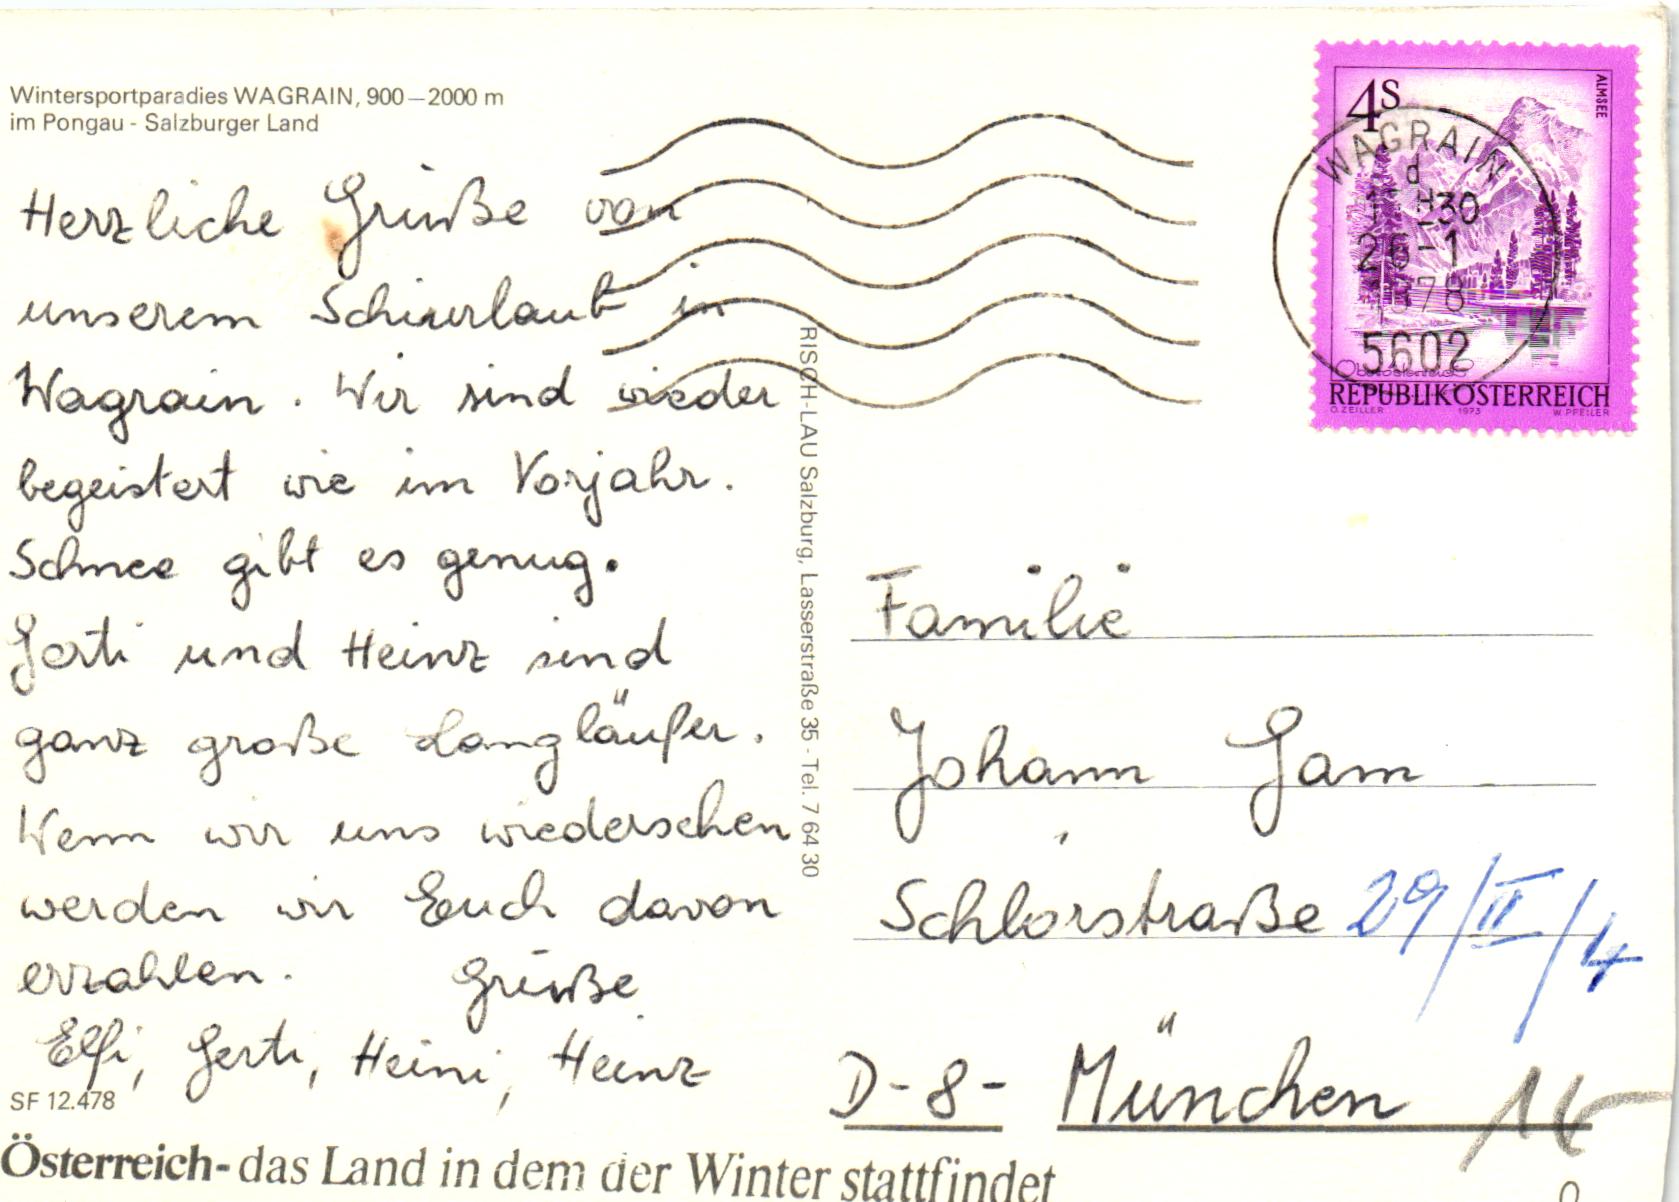 Wintersportparadies WAGRAIN, 900–2000 m
im Pongau - Salzburger Land
Herzliche Grüße von
unserem Schiurlaub in
Wagrain. Wir sind wieder
begeistert wie im Vorjahr.
Schnee gibt es genug.
Gerti und Heinz sind
ganz große Langläufer.
Wenn wir uns wiedersehen
werden wir Euch davon
erzahlen. Grüße
Elfi, Gerti, Heini, Heinz
SF 12.478
Österreich- das Land in dem der Winter stattfindet
RISCH-LAU Salzburg, Lasserstraße 35 - Tel. 7 64 30
4S
ALMSEE
WAGRAIN
d
26-1
78
5602
REPUBLIK ÖSTERREICH
O. ZEILLER 1973 W. PFEILER
Familie
Johann Gam
Schlörstraße 29/II/4
D-8- München